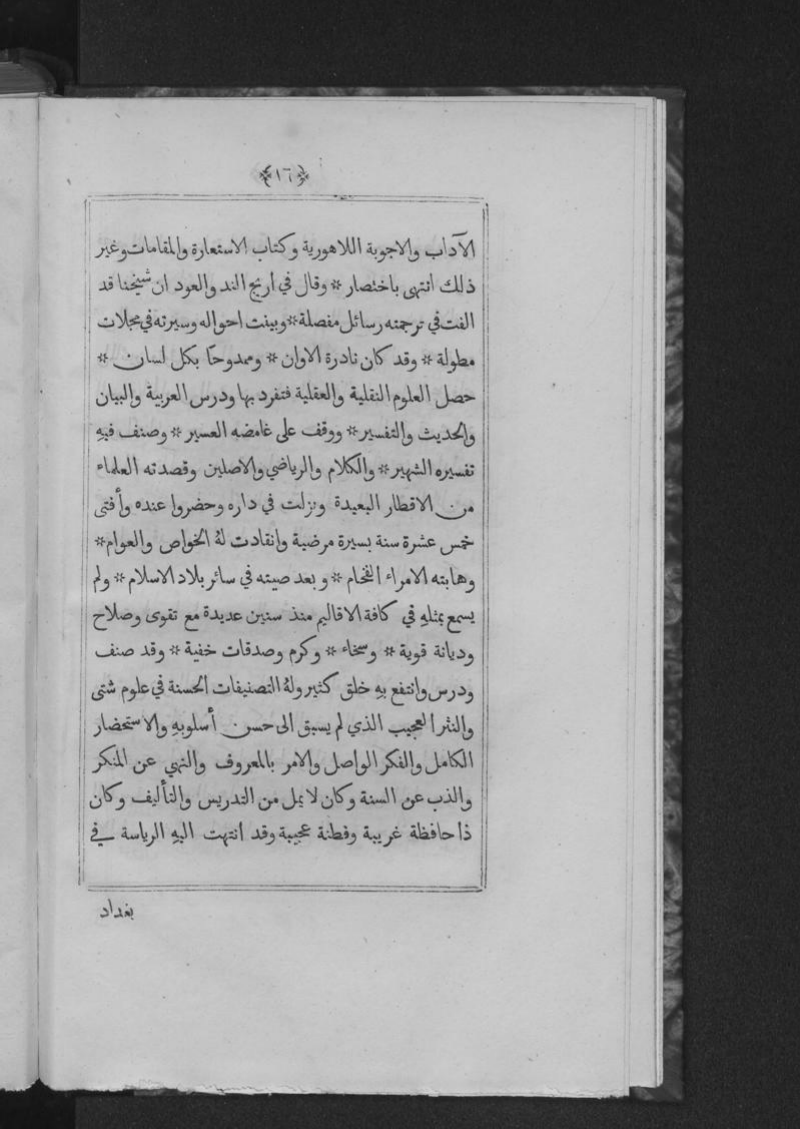 ﴿١٦﴾
الآداب والاجوبة اللاهورية وكتاب الاستعارة والمقامات وغير
ذلك انتهى باختصار * وقال في اريج الند والعود ان شيخنا قد
الفت في ترجمته رسائل مفصلة * وبينت احواله وسيرته في مجلات
مطولة * وقد كان نادرة الاوان * وممدوحًا بكل لسان *
حصل العلوم النقلية والعقلية فتفرد بها ودرس العربية والبيان
والحديث والتفسير * ووقف على غامضه العسير * وصنف فيهِ
تفسيره الشهير * والكلام والرياضي والاصلين وقصدته العلماء
من الاقطار البعيدة ونزلت في داره وحضروا عنده وأفتى
خمس عشرة سنة بسيرة مرضية وانقادت لهُ الخواص والعوام *
وهابته الامراء الفخام * وبعد صيته في سائر بلاد الاسلام * ولم
يسمع بمثلهِ في كافة الاقاليم منذ سنين عديدة مع تقوى وصلاح
وديانة قوية * وسخاء * وكرم وصدقات خفية * وقد صنف
ودرس وانتفع بهِ خلق كثير ولهُ التصنيفات الحسنة في علوم شتى
والنثر العجيب الذي لم يسبق الى حسن أسلوبهِ والاستحضار
الكامل والفكر الواصل والامر بالمعروف والنهي عن المنكر
والذب عن السنة وكان لا يمل من التدريس والتأليف وكان
ذا حافظة غريبة وفطنة عجيبة وقد انتهت اليهِ الرياسة في
بغداد